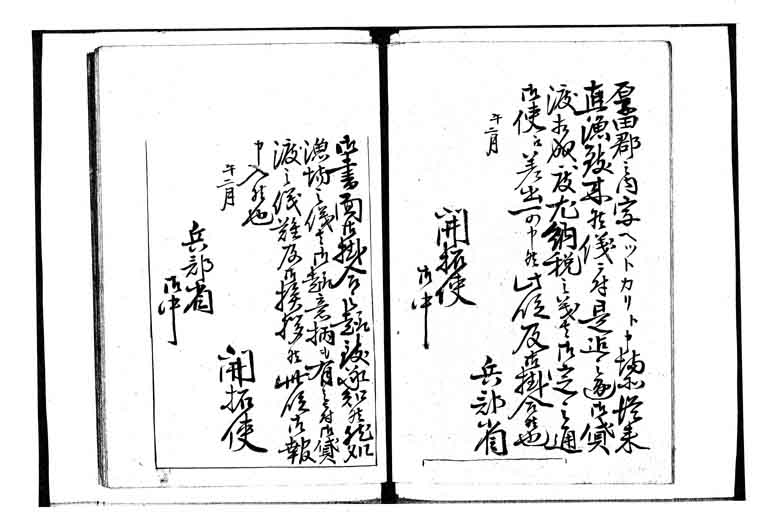 郡之内字ヘツトカリト申場所従来
直漁致来候儀ニ付是迄之通御貸
渡相成度尤納税之義者御定之通
御使江差出可申候此段及御掛合候也
午二月
兵部省
開拓使
御中
御書面御掛合之趣致承知候然処
漁場之儀者御趣意柄も有之付御貸
渡之儀難及御挨拶候此段御報
申入候也
午二月
開拓使
兵部省
御中